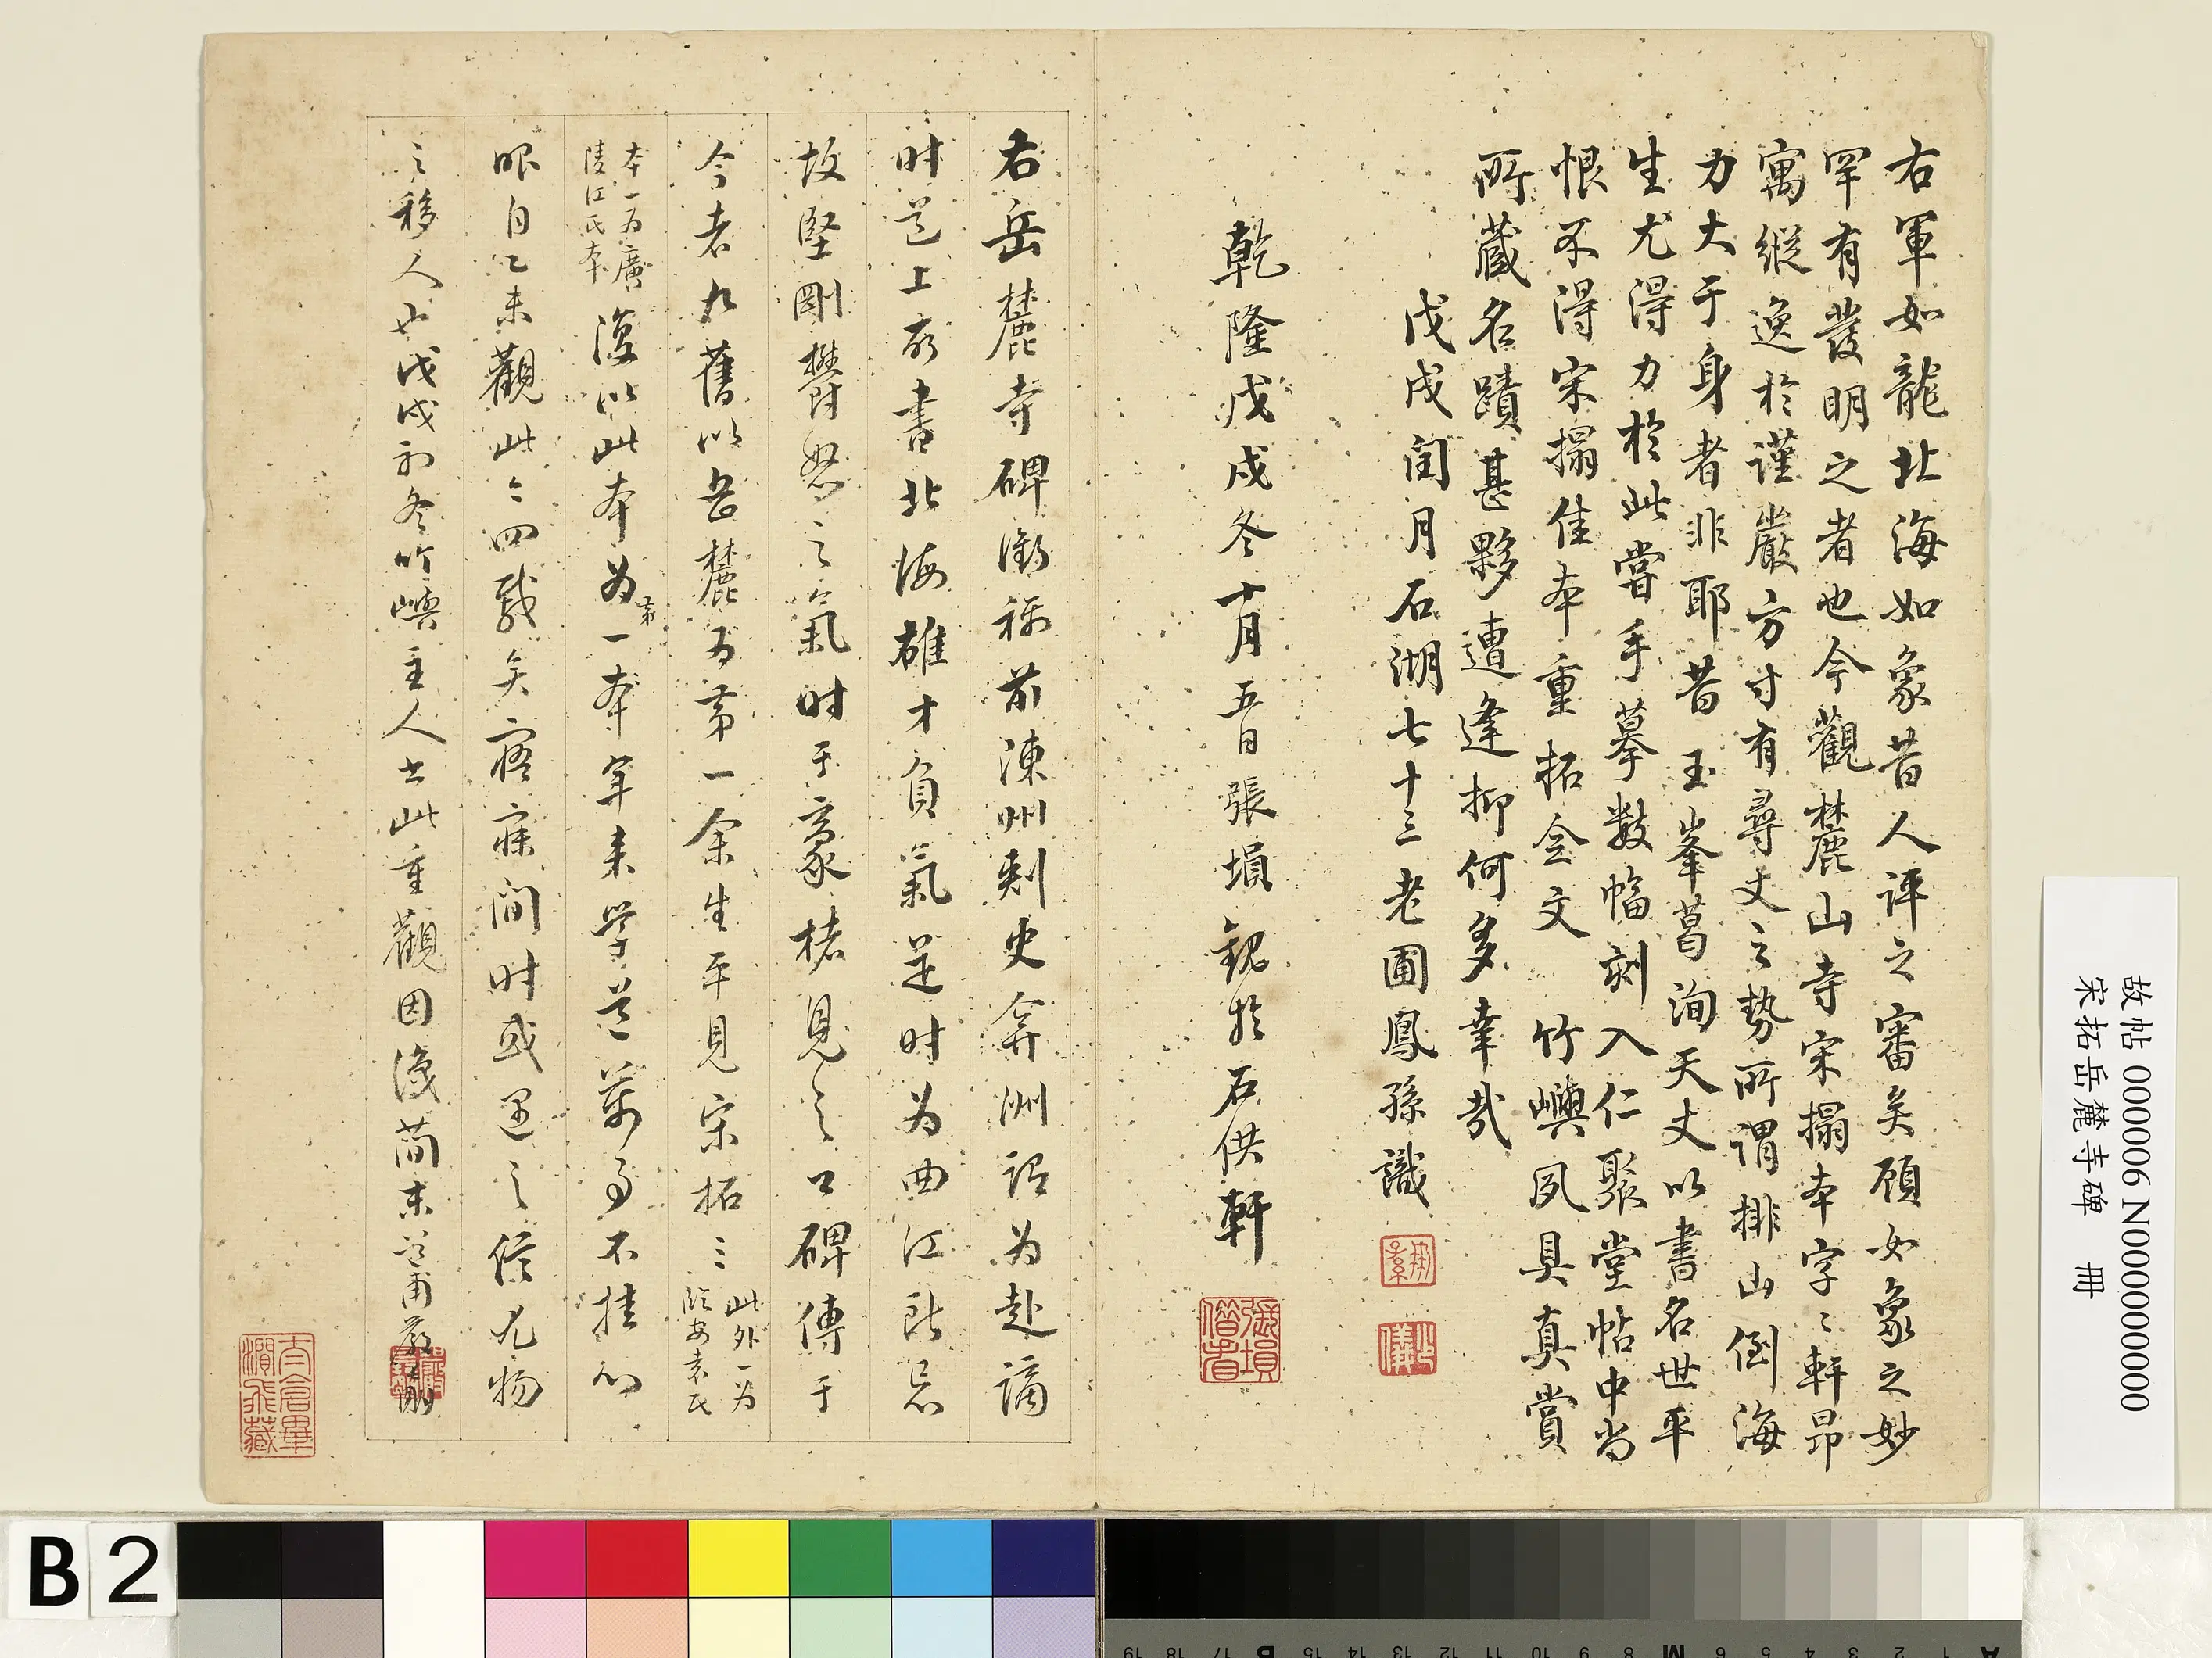 右軍如龍北海如象昔人評之審矣顧如象之妙
罕有發明之者也今觀麓山寺宋搨本字〻軒昂
寓縱逸於謹嚴方寸有尋丈之勢所謂排山倒海
力大于身者非耶昔玉峯葛洵天丈以書名世平
生尤得力於此嘗手摹數幅刻入仁聚堂帖中尚
恨不得宋搨佳本重拓今文竹嶼夙具真賞
所藏名蹟甚夥遭逢抑何多幸哉
戊戌閏月石湖七十三老圃鳳孫識
乾隆戊戌冬十月五日張塤觀於石供軒
張塤
右岳麓寺碑銜稱前陳州刺史弇洲謂為赴謫
时道上所書北海雄才負氣是时為曲江所忌
故堅剛鬱怒之氣时于豪楮見之口碑傳于
今者九舊以岳麓為第一余生平見宋拓三
此外一为
臨安袁氏
本一为廣
陵江氏本
復以此本为第一本年来学道萬事不挂心
眼自乙未觀此〻四載矣寤寐間时或遇之信尤物
之移人也戊戌初冬竹嶼主人出此重觀因復簡末道甫嚴長明
太倉畢
瀾飛藏
故帖 000006 N000000000
宋拓岳麓寺碑 冊
B 2
19 18 17 B 15 14 13 12 11 10 9 8 M 6 5 4 3 2 1 A